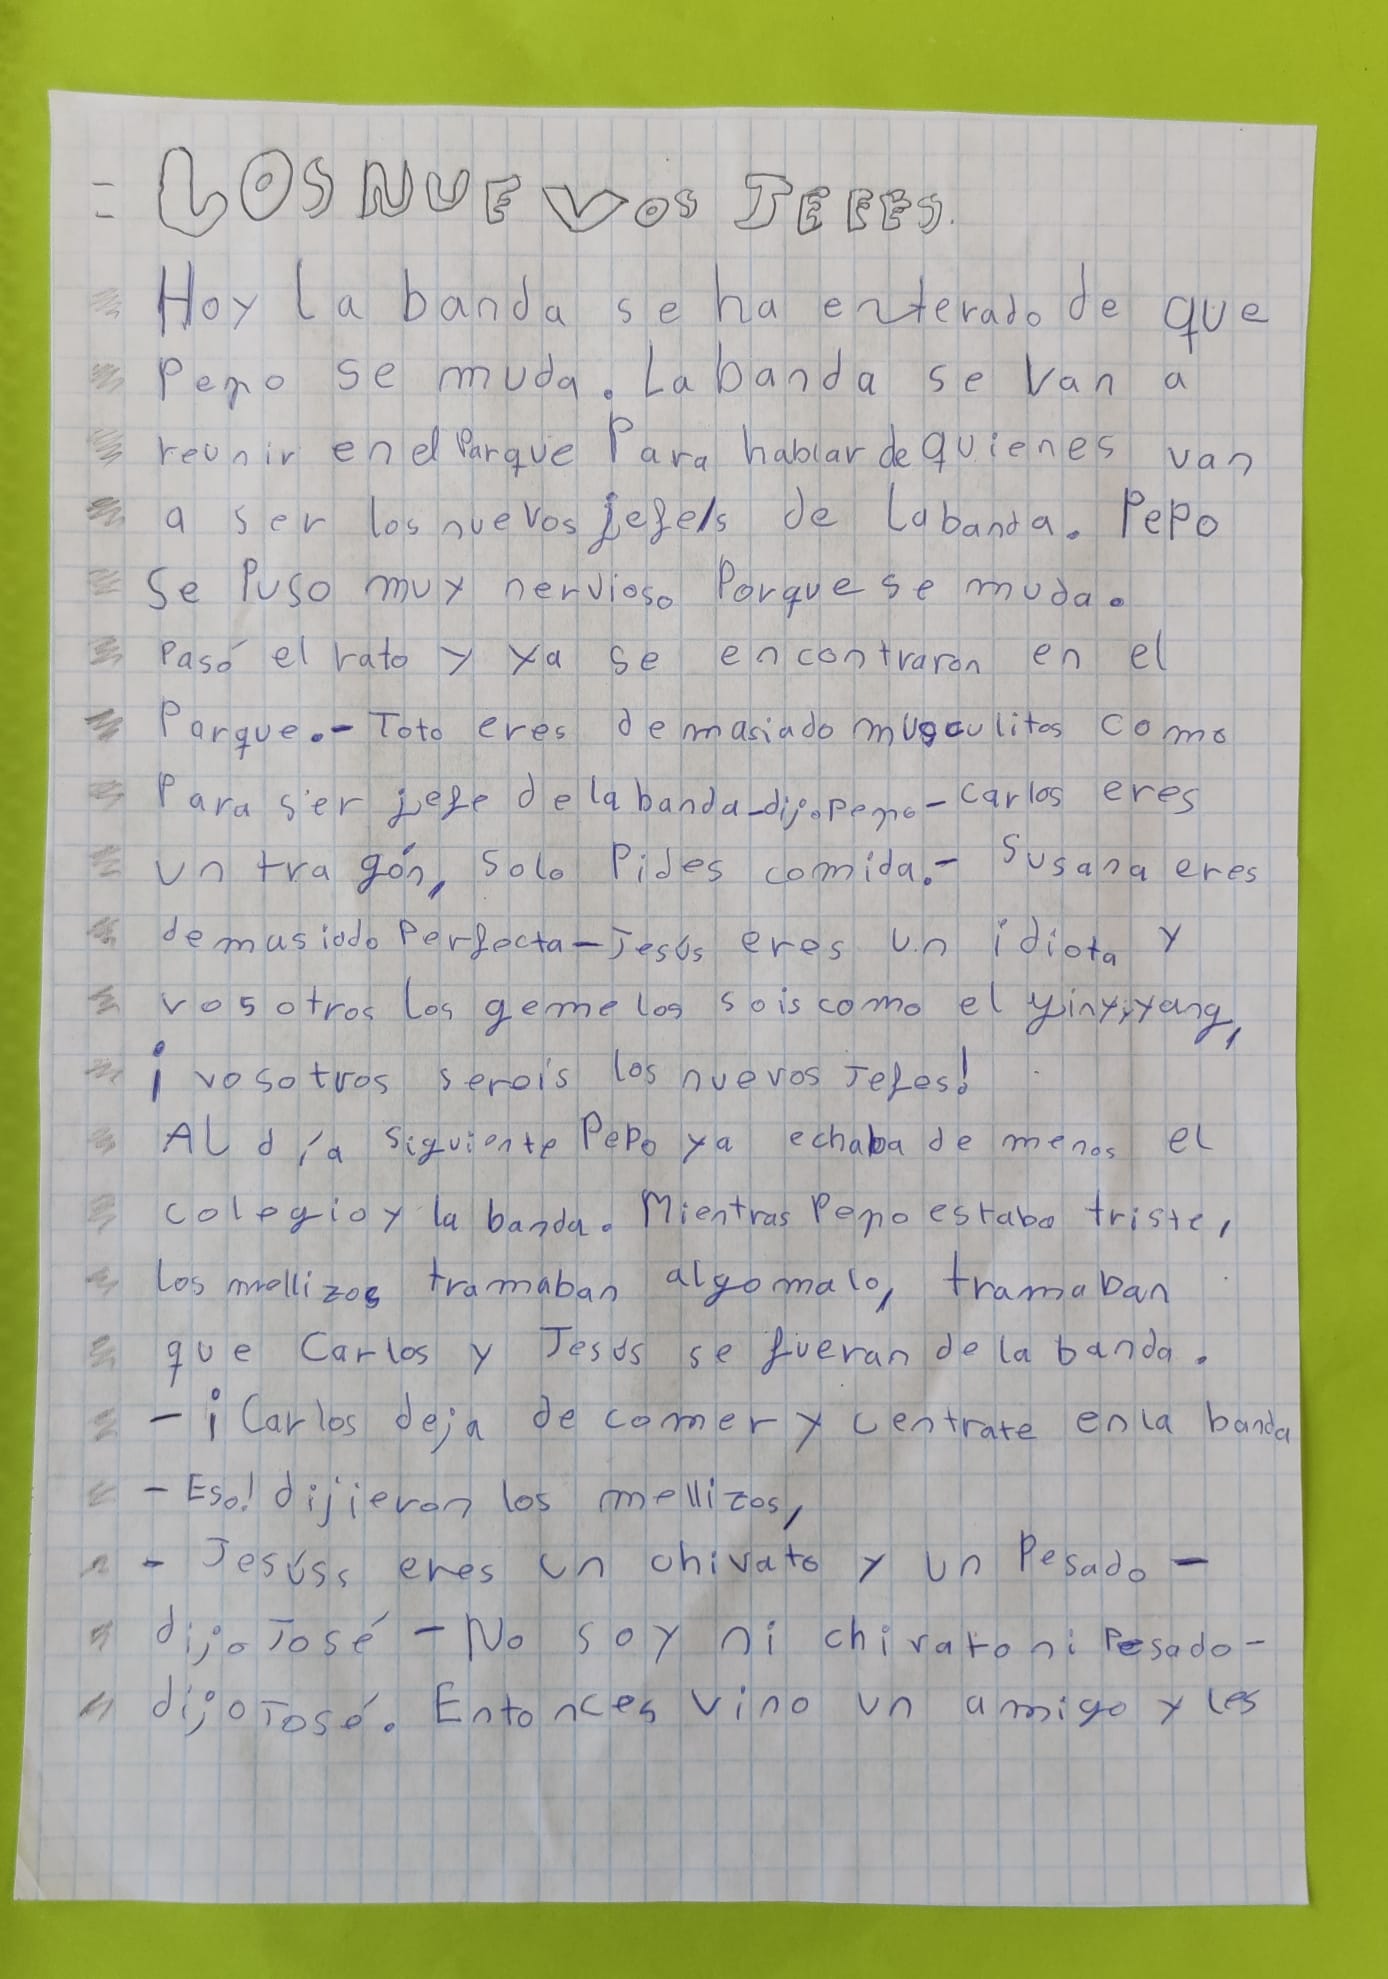 LOS NUEVOS JEFES.
Hoy la banda se ha enterado de que
Pepo se muda. La banda se van a
reunir en el Parque Para hablar de quienes van
a ser los nuevos jefes de la banda. Pepo
se Puso muy nervioso Porque se muda.
Pasó el rato y ya se encontraron en el
Parque.- Toto eres demasiado musculitos como
Para ser jefe de la banda-dijo Pepo- Carlos eres
un tragón, solo Pides comida.- Susana eres
demasiado Perfecta-Jesús eres un idiota y
vosotros los gemelos sois como el yin y yang,
¡vosotros seréis los nuevos Jefes!
Al día siguiente Pepo ya echaba de menos el
colegio y la banda. Mientras Pepo estaba triste,
los mellizos tramaban algo malo, tramaban
que Carlos y Jesús se fueran de la banda.
- ¡Carlos deja de comer y centrate en la banda
- Eso! dijieron los mellizos,
- Jesúss eres un chivato y un Pesado -
dijo José - No soy ni chivato ni Pesado -
dijo José. Entonces vino un amigo y les